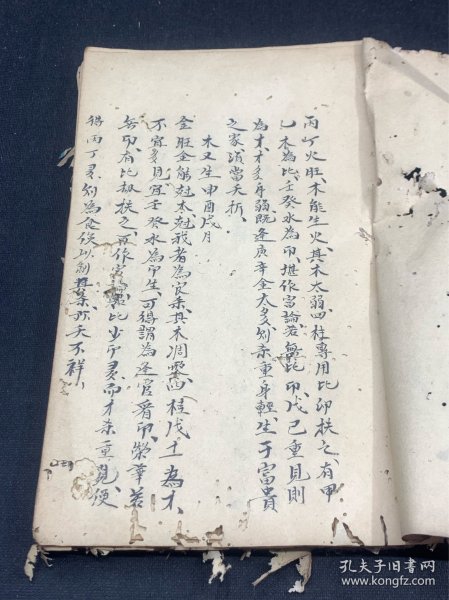 丙丁火旺木能生火其木太弱四柱專用比印扶之有甲
乙木為比壬癸水為印堪作富論若無比印戊己重見則
為才才多身弱既逢庚辛金太多刻杀重身輕生于富貴
之家須當夭折
木又生申酉戌月
金旺金能尅木尅我者為官杀其木凋零四柱戊土為才
不宜多見宜壬癸水為印生可得謂為逢官看印榮華若
無印有比扶之亦作富比少印寡而才杀重見便
得丙丁多則為食傷以制其杀亦夭不祥
孔夫子旧书网
www.kongfz.com